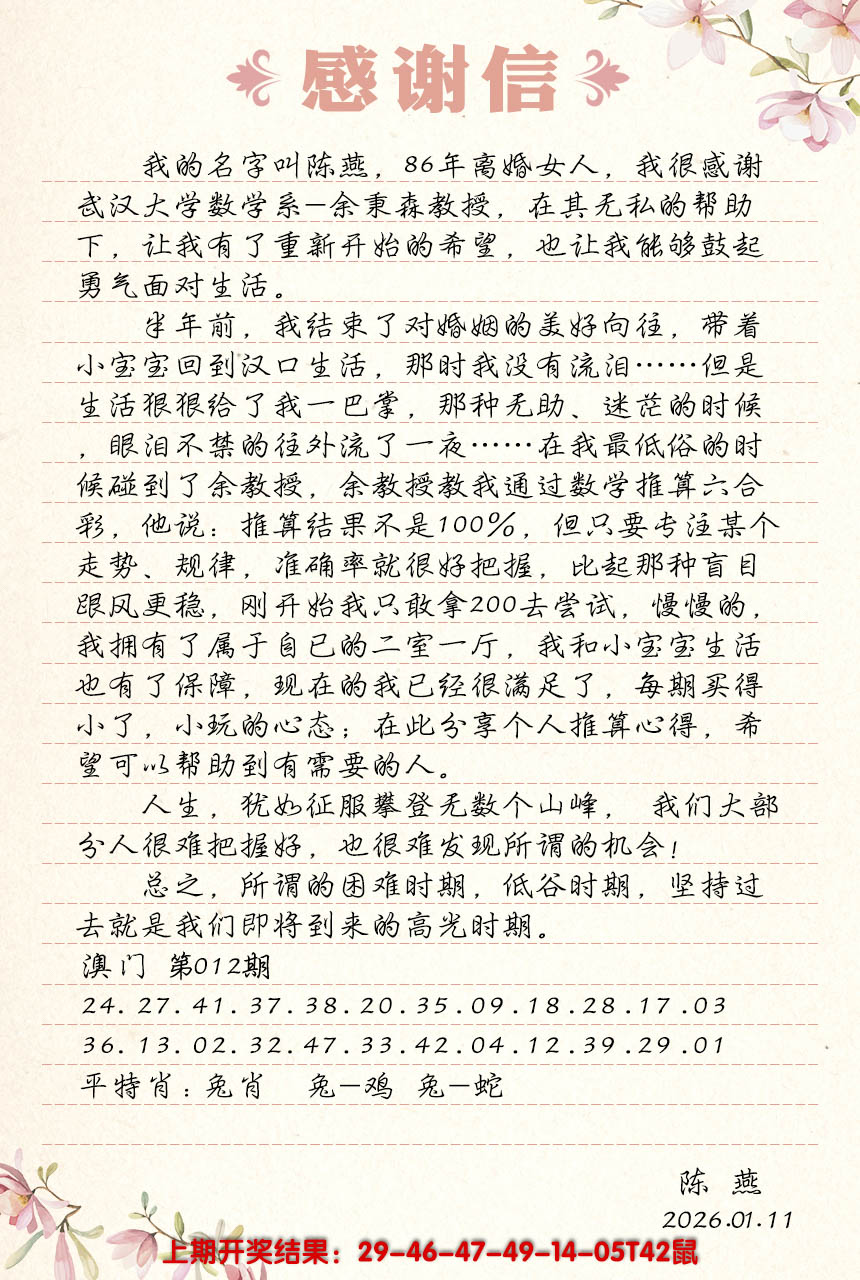 感谢信
我的名字叫陈燕，86年离婚女人，我很感谢
武汉大学数学系—余秉森教授，在其无私的帮助
下，让我有了重新开始的希望，也让我能够鼓起
勇气面对生活。
半年前，我结束了对婚姻的美好向往，带着
小宝宝回到汉口生活，那时我没有流泪……但是
生活狠狠给了我一巴掌，那种无助、迷茫的时候
，眼泪不禁的往外流了一夜……在我最低俗的时
候碰到了余教授，余教授教我通过数学推算六合
彩，他说：推算结果不是100%，但只要专注某个
走势、规律，准确率就很好把握，比起那种盲目
跟风更稳，刚开始我只敢拿200去尝试，慢慢的，
我拥有了属于自已的二室一厅，我和小宝宝生活
也有了保障，现在的我已经很满足了，每期买得
小了，小玩的心态；在此分享个人推算心得，希
望可以帮助到有需要的人。
人生，犹如征服攀登无数个山峰， 我们大部
分人很难把握好，也很难发现所谓的机会！
总之，所谓的困难时期，低谷时期，坚持过
去就是我们即将到来的高光时期。
澳门 第012期
24.27.41.37.38.20.35.09.18.28.17.03
36.13.02.32.47.33.42.04.12.39.29.01
平特肖：兔肖 兔—鸡 兔—蛇
陈 燕
2026.01.11
上期开奖结果：29-46-47-49-14-05T42鼠